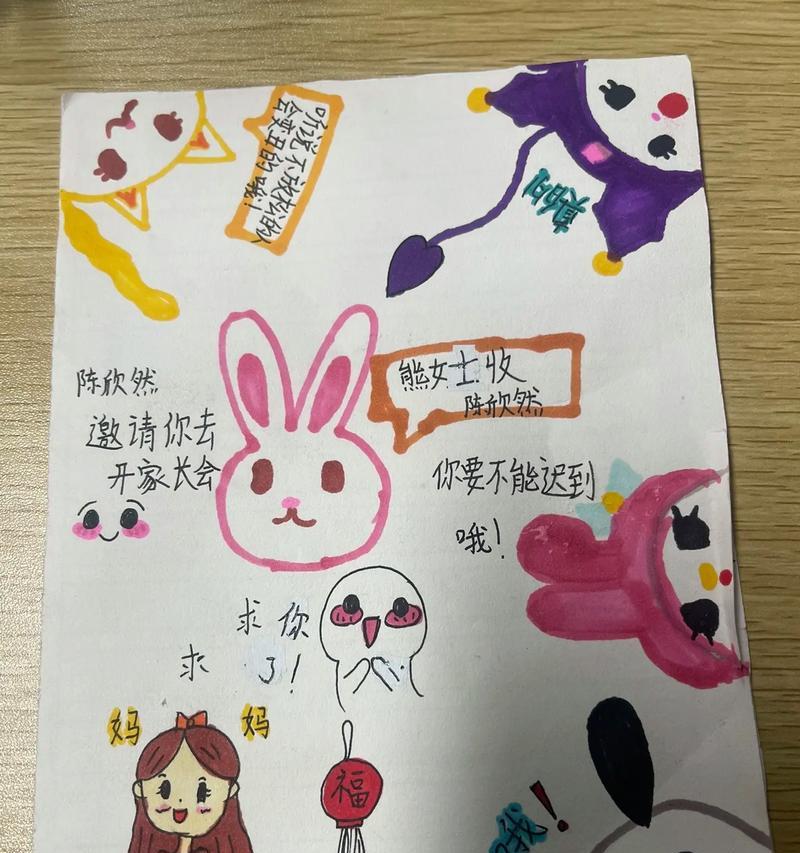 听说不放松的人
会变丑的哦!
真的
陈欣然
邀请你去
开家长会
熊女士收
陈欣然
你要不能迟到
哦!
求你
求 了!
妈 妈
福
哦!